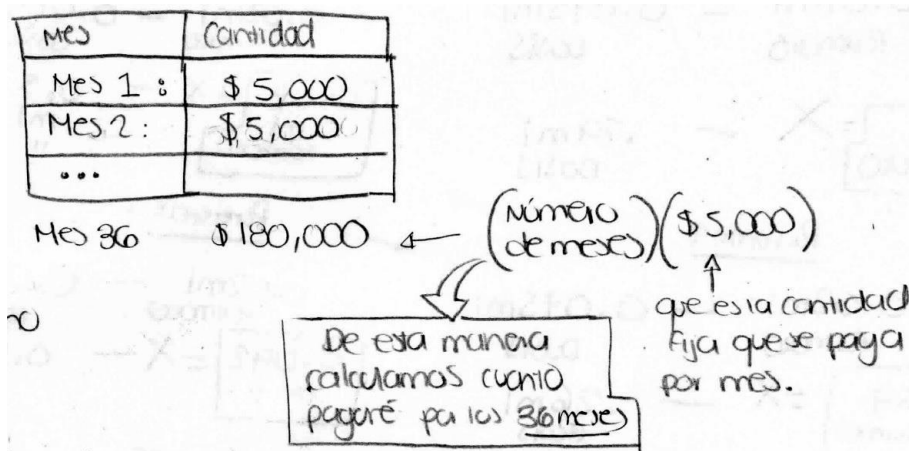 Mes Cantidad
Mes 1: $5,000
Mes 2: $5,000
...
Mes 36 $180,000 ← (Número de meses)($5,000)
que es la cantidad
Fija que se paga
por mes.
De esta manera
calculamos cuanto
pagaré por los 36 meses